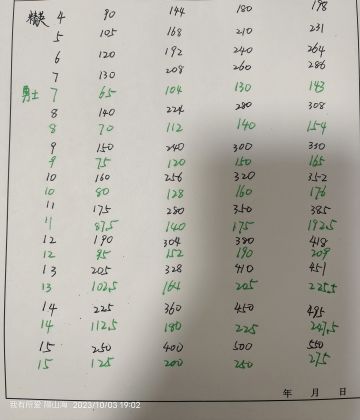 精英 4 90 144 180 198
5 105 168 210 231
6 120 192 240 264
7 130 208 260 286
勇士 7 65 104 130 143
8 140 224 280 308
8 70 112 140 154
9 150 240 300 330
9 75 120 150 165
10 160 256 320 352
10 80 128 160 176
11 175 280 350 385
11 87.5 140 175 192.5
12 190 304 380 418
12 95 152 190 209
13 205 328 410 451
13 102.5 164 205 225.5
14 225 360 450 495
14 112.5 180 225 247.5
15 250 400 500 550
15 125 200 250 275
年 月 日
我有所爱 隔山海 2023/10/03 19:02